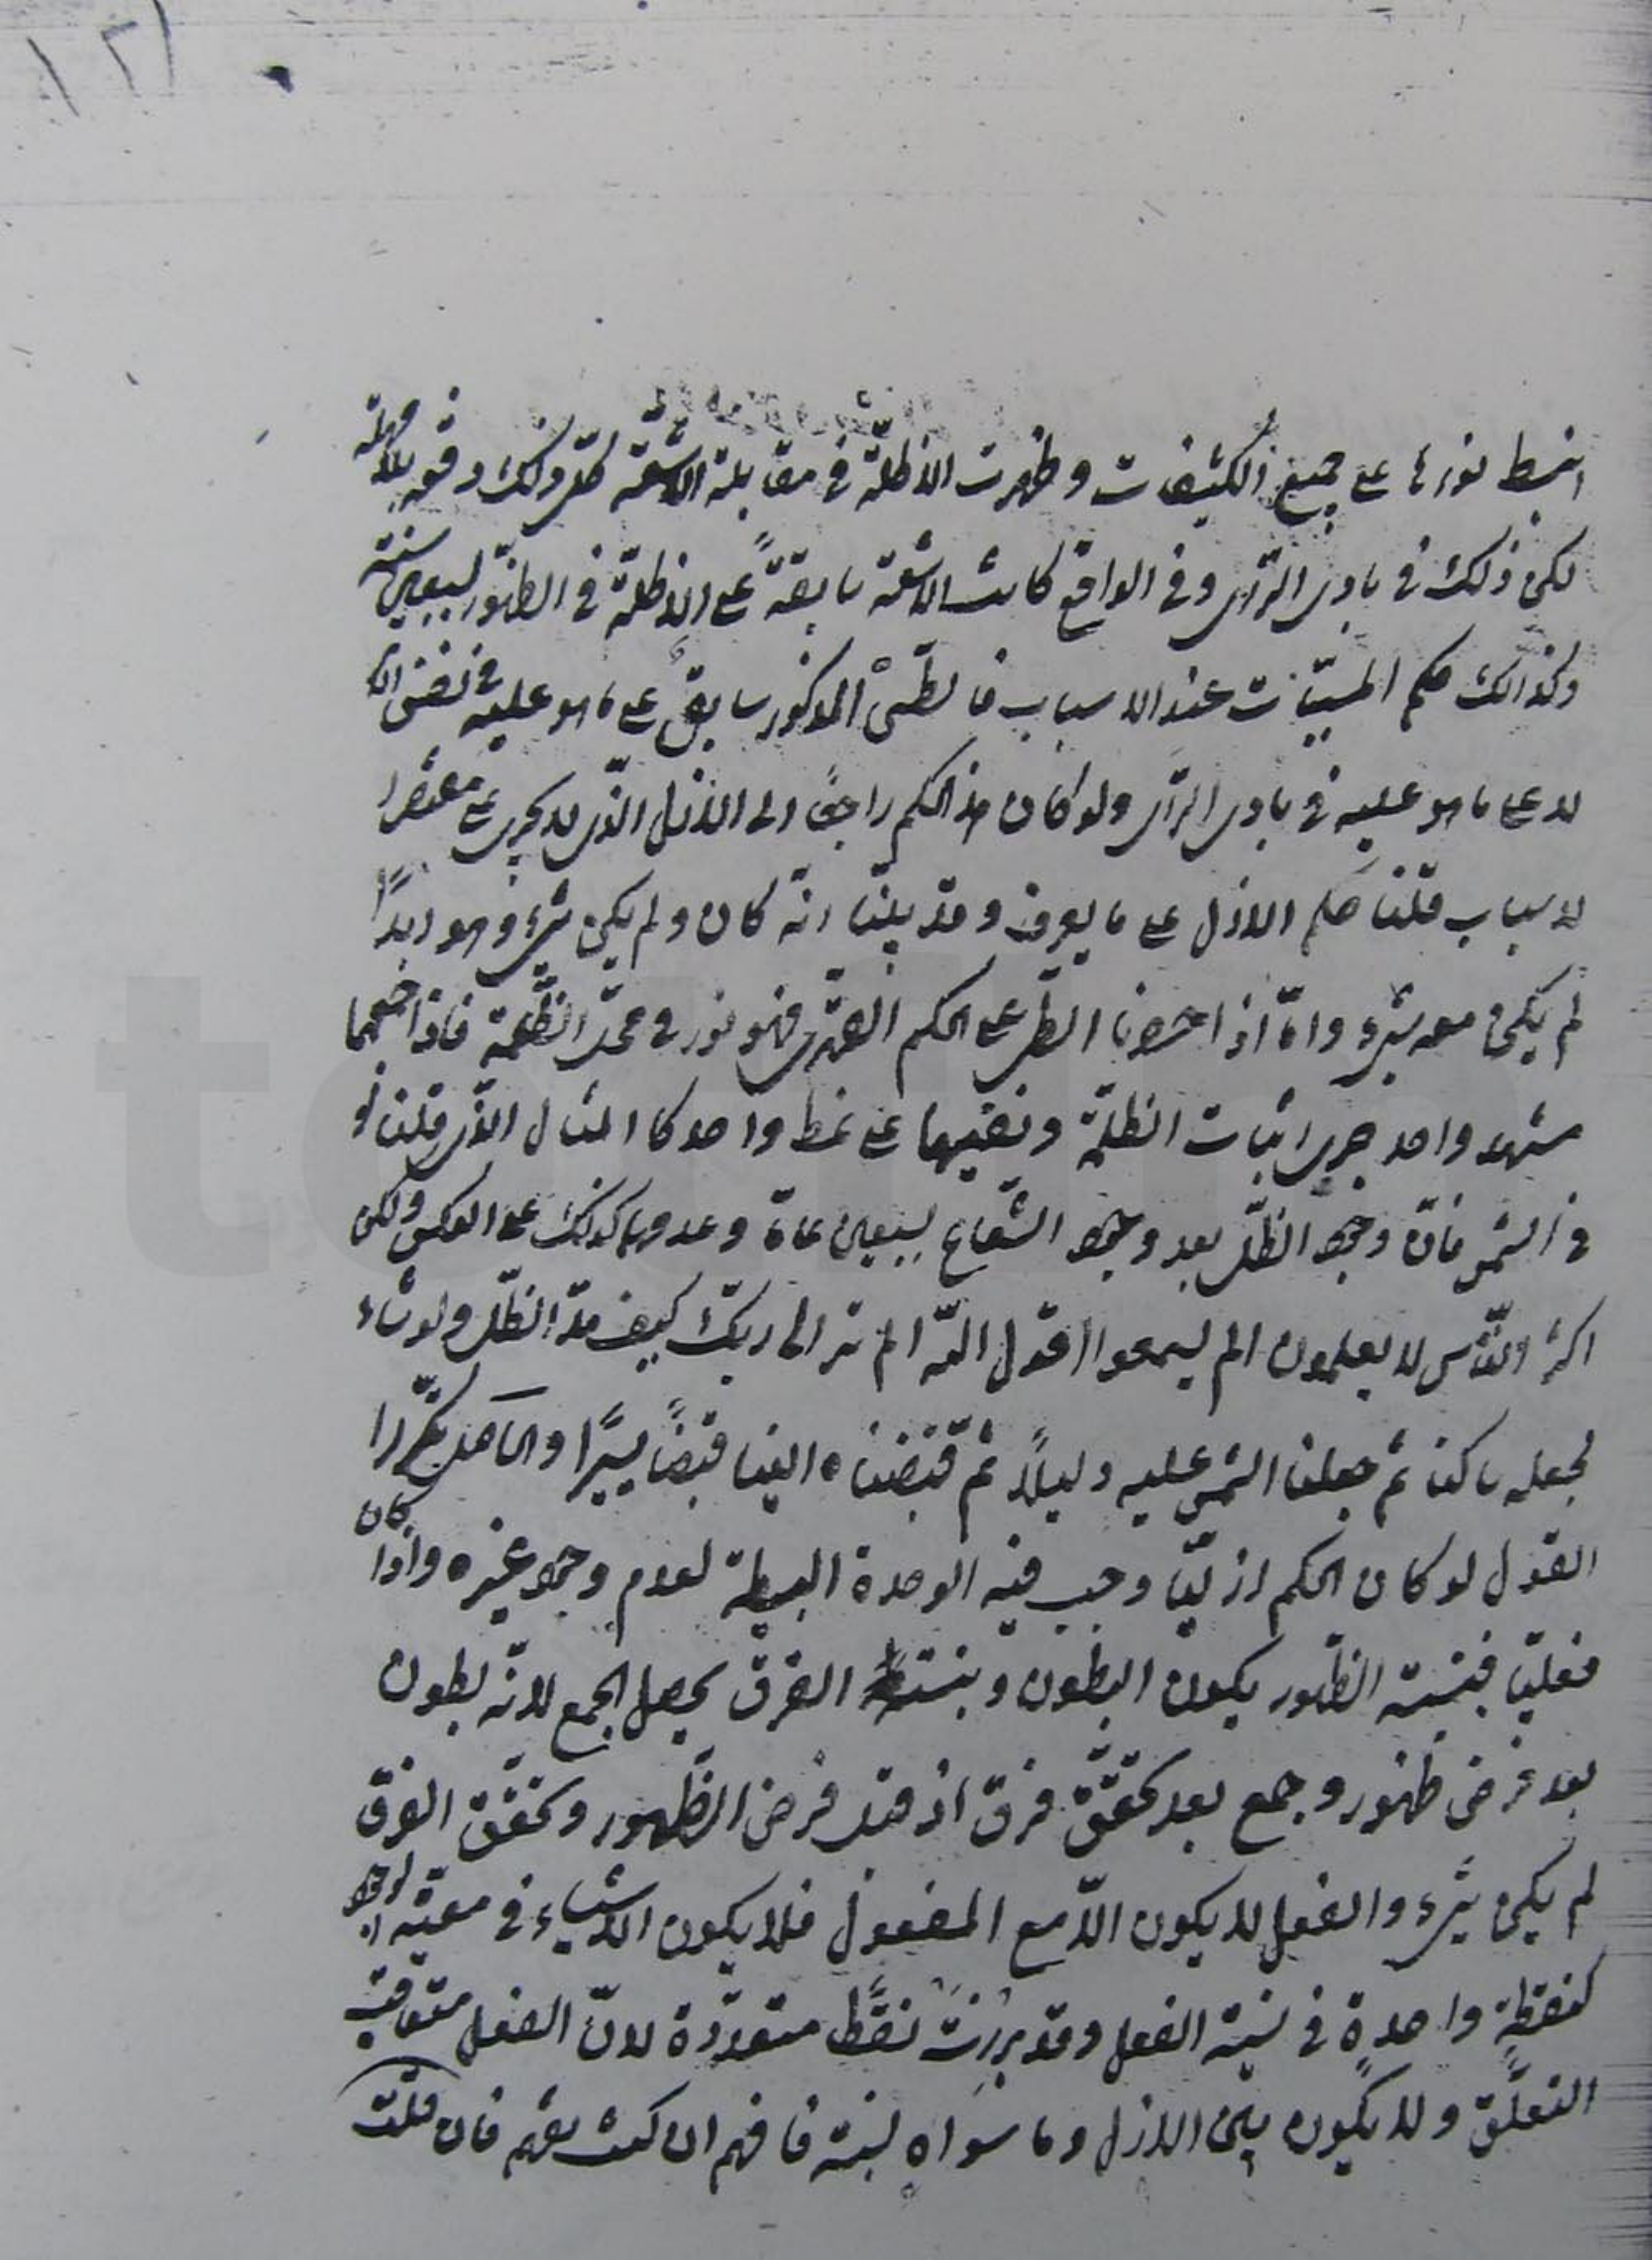 ۱۲۱
انبسط نورها على جميع الكثيفات وظهرت الاظلّة فى مقابلة الاشعّة كلّ ذلك دفعة بلا مهلة
لكن ذلك فى بادى الرّأى وفى الواقع كانت الاشعة سابقةً على الاظلّة فى الظهور لسبعين سنة
وكذالك حكم المسبّبات عند الاسباب المذكور سابق على ما هو عليه فى نفس
لا على ما هو عليه فى بادى الرّأى ولو كان هذا الحكم راجعًا الى الازل الّذى لا يجرى على
لاسباب قلنا حكم الازل على ما يعرف وقد بيّنا انّه كان ولم يكن شىء وهو ابدًا
لم يكن معه شىء وامّا اذا على الحكم فهو نور فى محلّ الظّلمة فاذا
مشهد واحد جرى اثبات الظلمة ونفيها على نمط واحد كالمثال الّذى قلنا
فى الشمس فانّ وجود الظّلّ بعد وجود الشّعاع بسبعين عامًا وعدمها كذلك على العكس ولكن
اكثر النّاس لا يعلمون الم يسمعوا قول اللّه الم تر الى ربّك كيف مدّ الظّلّ ولو شاء
لجعله ساكنا ثم جعلنا الشمس عليه دليلًا ثم قبضناه الينا قبضًا يسيرًا والحاصل
القول لو كان الحكم ازليّا وجب فيه الوحدة البسيطة لعدم وجود غيره واذا كان
فعليّا فبنسبة الظّهور يكون البطون وبنسبة الفرق يحصل الجمع لانّه بطون
بعد فرض ظهور وجمع بعد تحقّق فرق اذ قبل فرض الظّهور وتحقّق الفرق
لم يكن شىء والفعل لا يكون الّا مع المفعول فلا يكون الاشياء فى معيّة الوجود
كنقطةٍ واحدةٍ فى نسبة الفعل وقد برزت نقطًا متعدّدة لانّ الفعل متعاقب
التعلّق ولا يكون بين الازل وما سواه نسبة فافهم ان كنت تفهم فان قلت